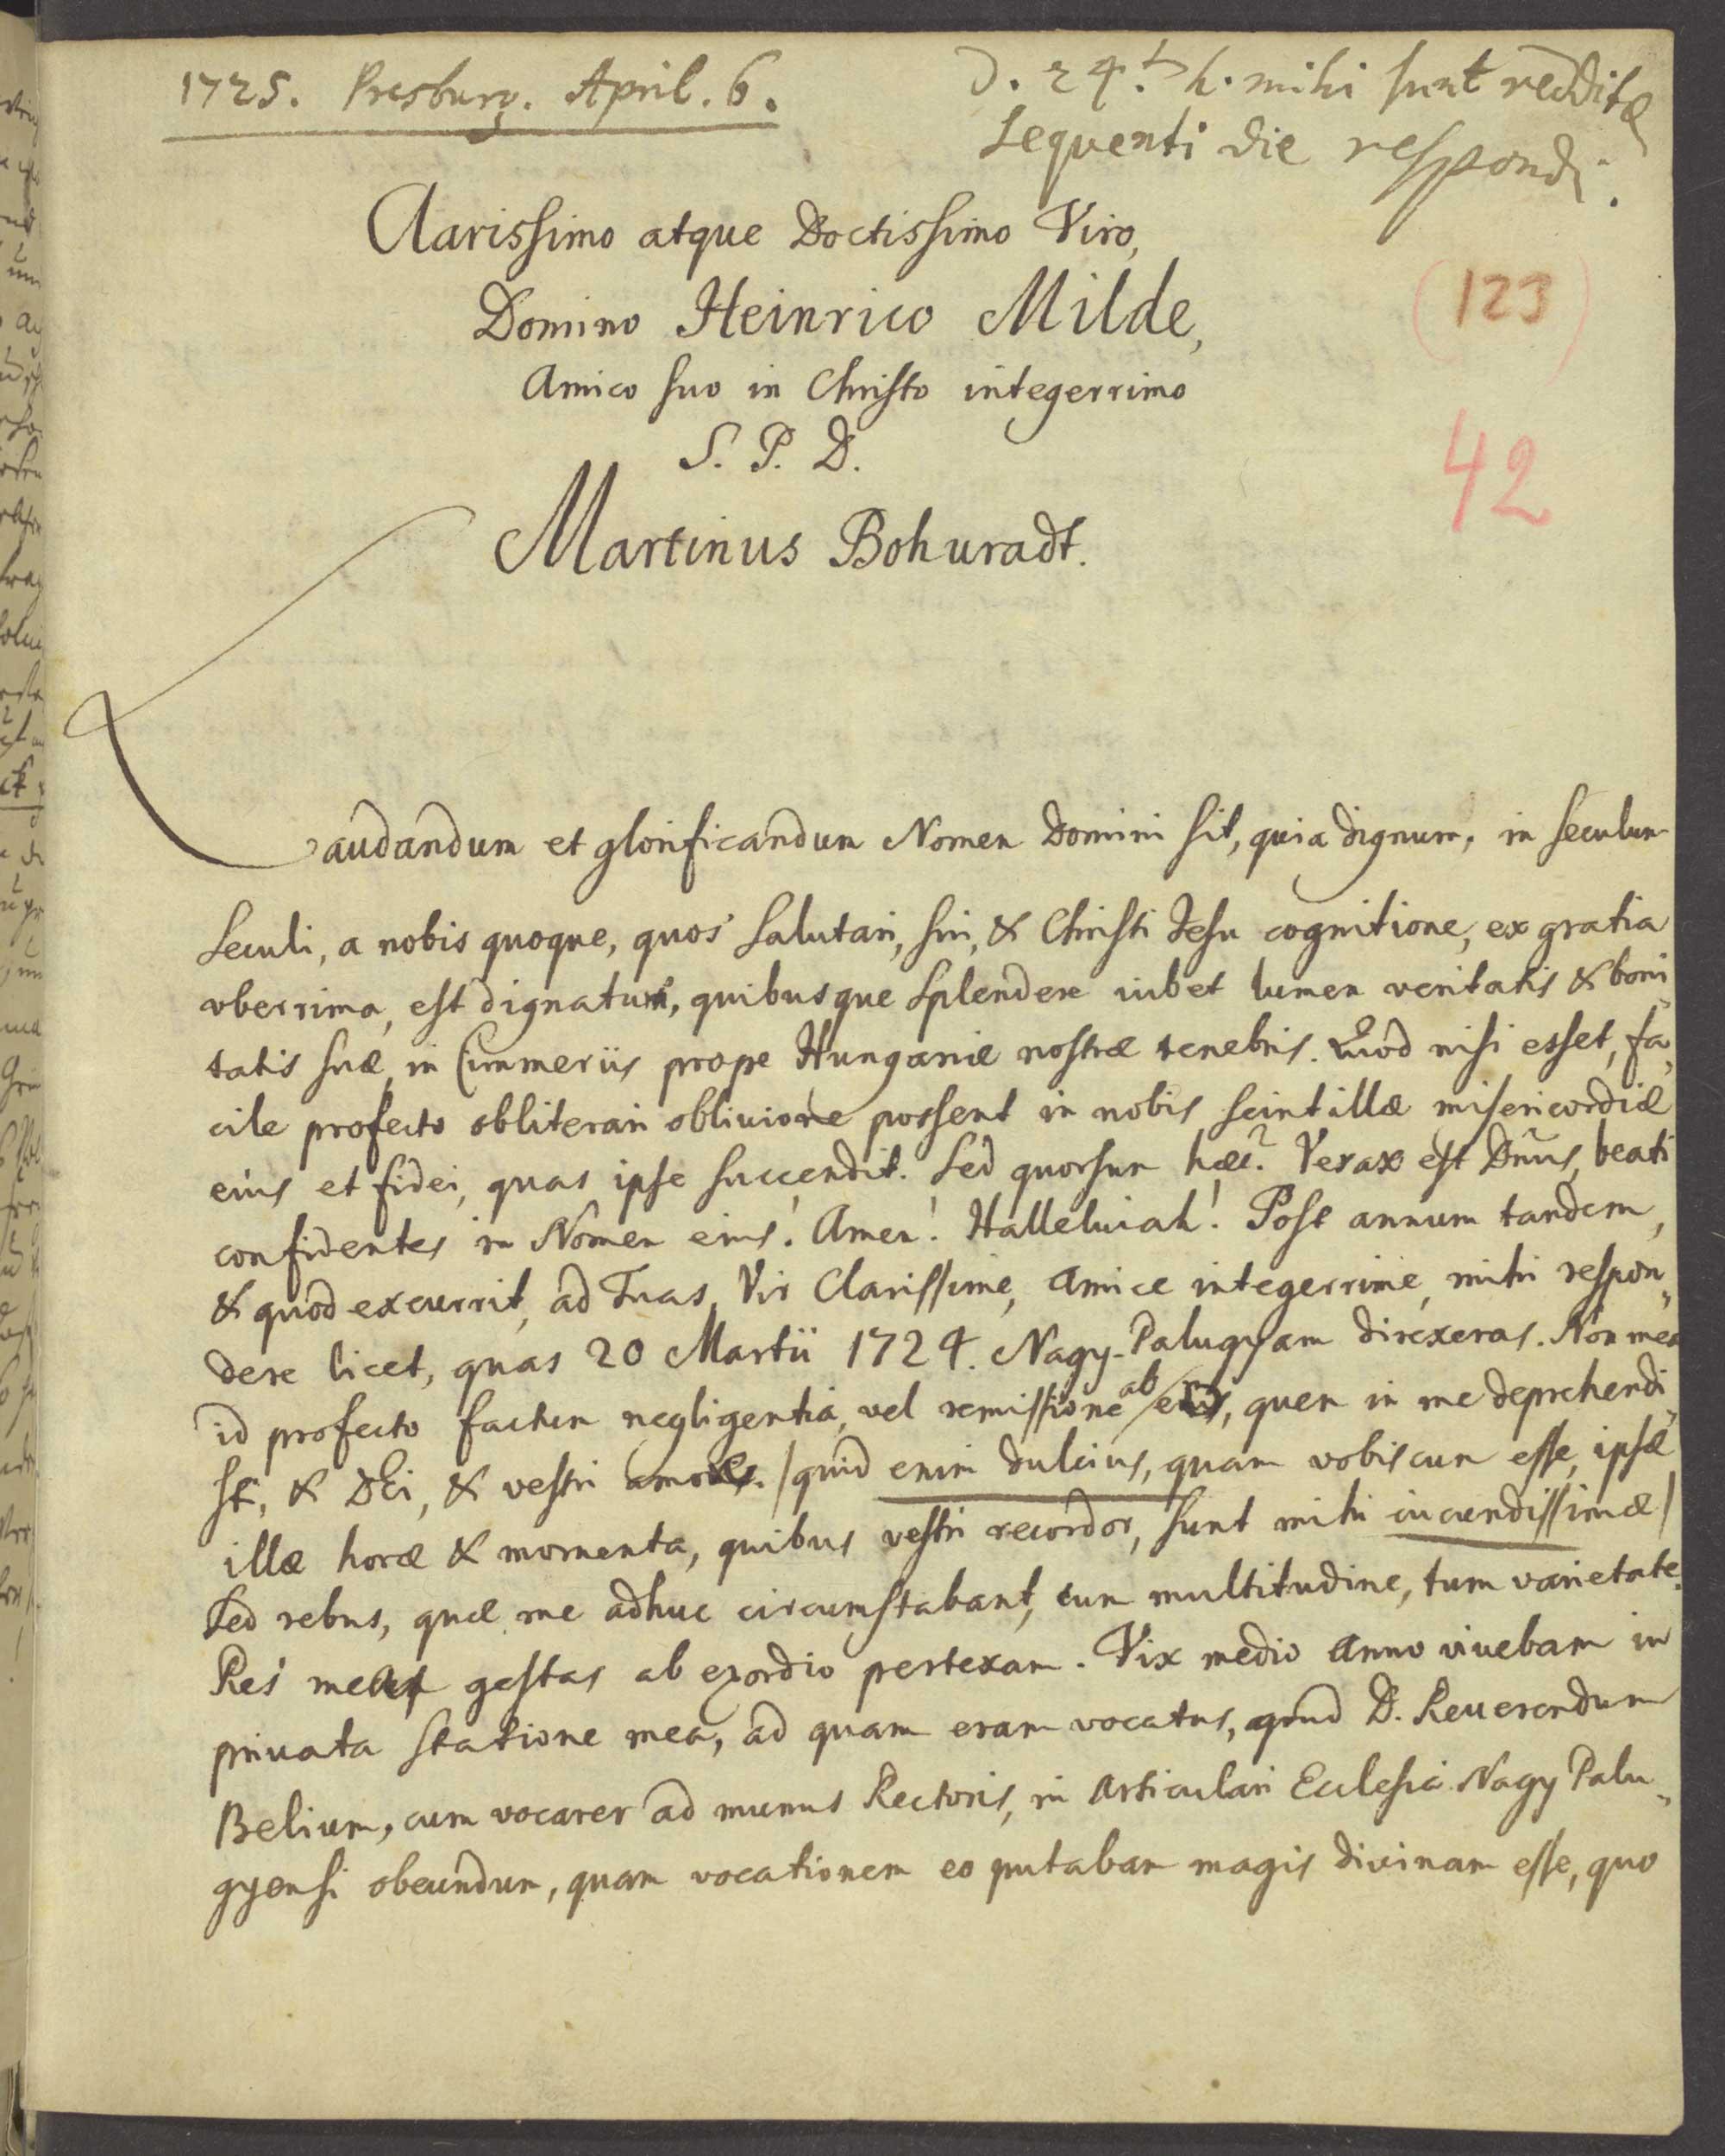 1725. Presburg. April. 6.
d. 24.t h. mihi sunt redditæ
sequenti die respondi.
Clarissimo atque Doctissimo Viro,
Domino Heinrico Milde,
Amico suo in Christo integerrimo
(123)
S. P. D.
42
Martinus Bohuradt.
Laudandum et glorificandum Nomen Domini sit, quia dignum, in seculum
seculi, a nobis quoque, quos salutari, sui, & Christi Jesu cognitione, ex gratia
vberrima, est dignatum, quibusque splendere iubet lumen veritatis & boni„
tatis suæ, in Cimmeriis prope Hungariæ nostræ tenebris. Quod nisi esset, fa„
cile profecto obliterari obliuione possent in nobis, scintillæ misericordiæ
eius et fidei, quas ipse succendit. Sed quorsum hæc? Verax est Dn̄us, beati
confidentes in Nomen eius! Amen! Halleluiah! Post annum tandem,
& quod excurrit, ad Tuas, Vir Clarissime, Amice integerrime, mihi respon„
dere licet, quas 20 Martii 1724. Nagy-Palugyam direxeras. Non mea
id profecto factum negligentia, vel remissione ab eo, quem in me deprehendi„
st, & DEi, & vestri amore. /quid enim dulcius, quam vobiscum esse, ipsæ
illæ horæ & momenta, quibus vestri recordor, sunt mihi iucundissimæ/
Sed rebus, quæ me adhuc circumstabant, cum multitudine, tum varietate.
Res meas gestas ab exordio pertexam. Vix medio anno viuebam in
priuata statione mea, ad quam eram vocatus, apud D. Reuerendum
Belium, cum vocarer ad munus Rectoris, in Articulari Ecclesia Nagy Palu„
gyensi obeundum, quam vocationem eo putabam magis divinam esse, quo